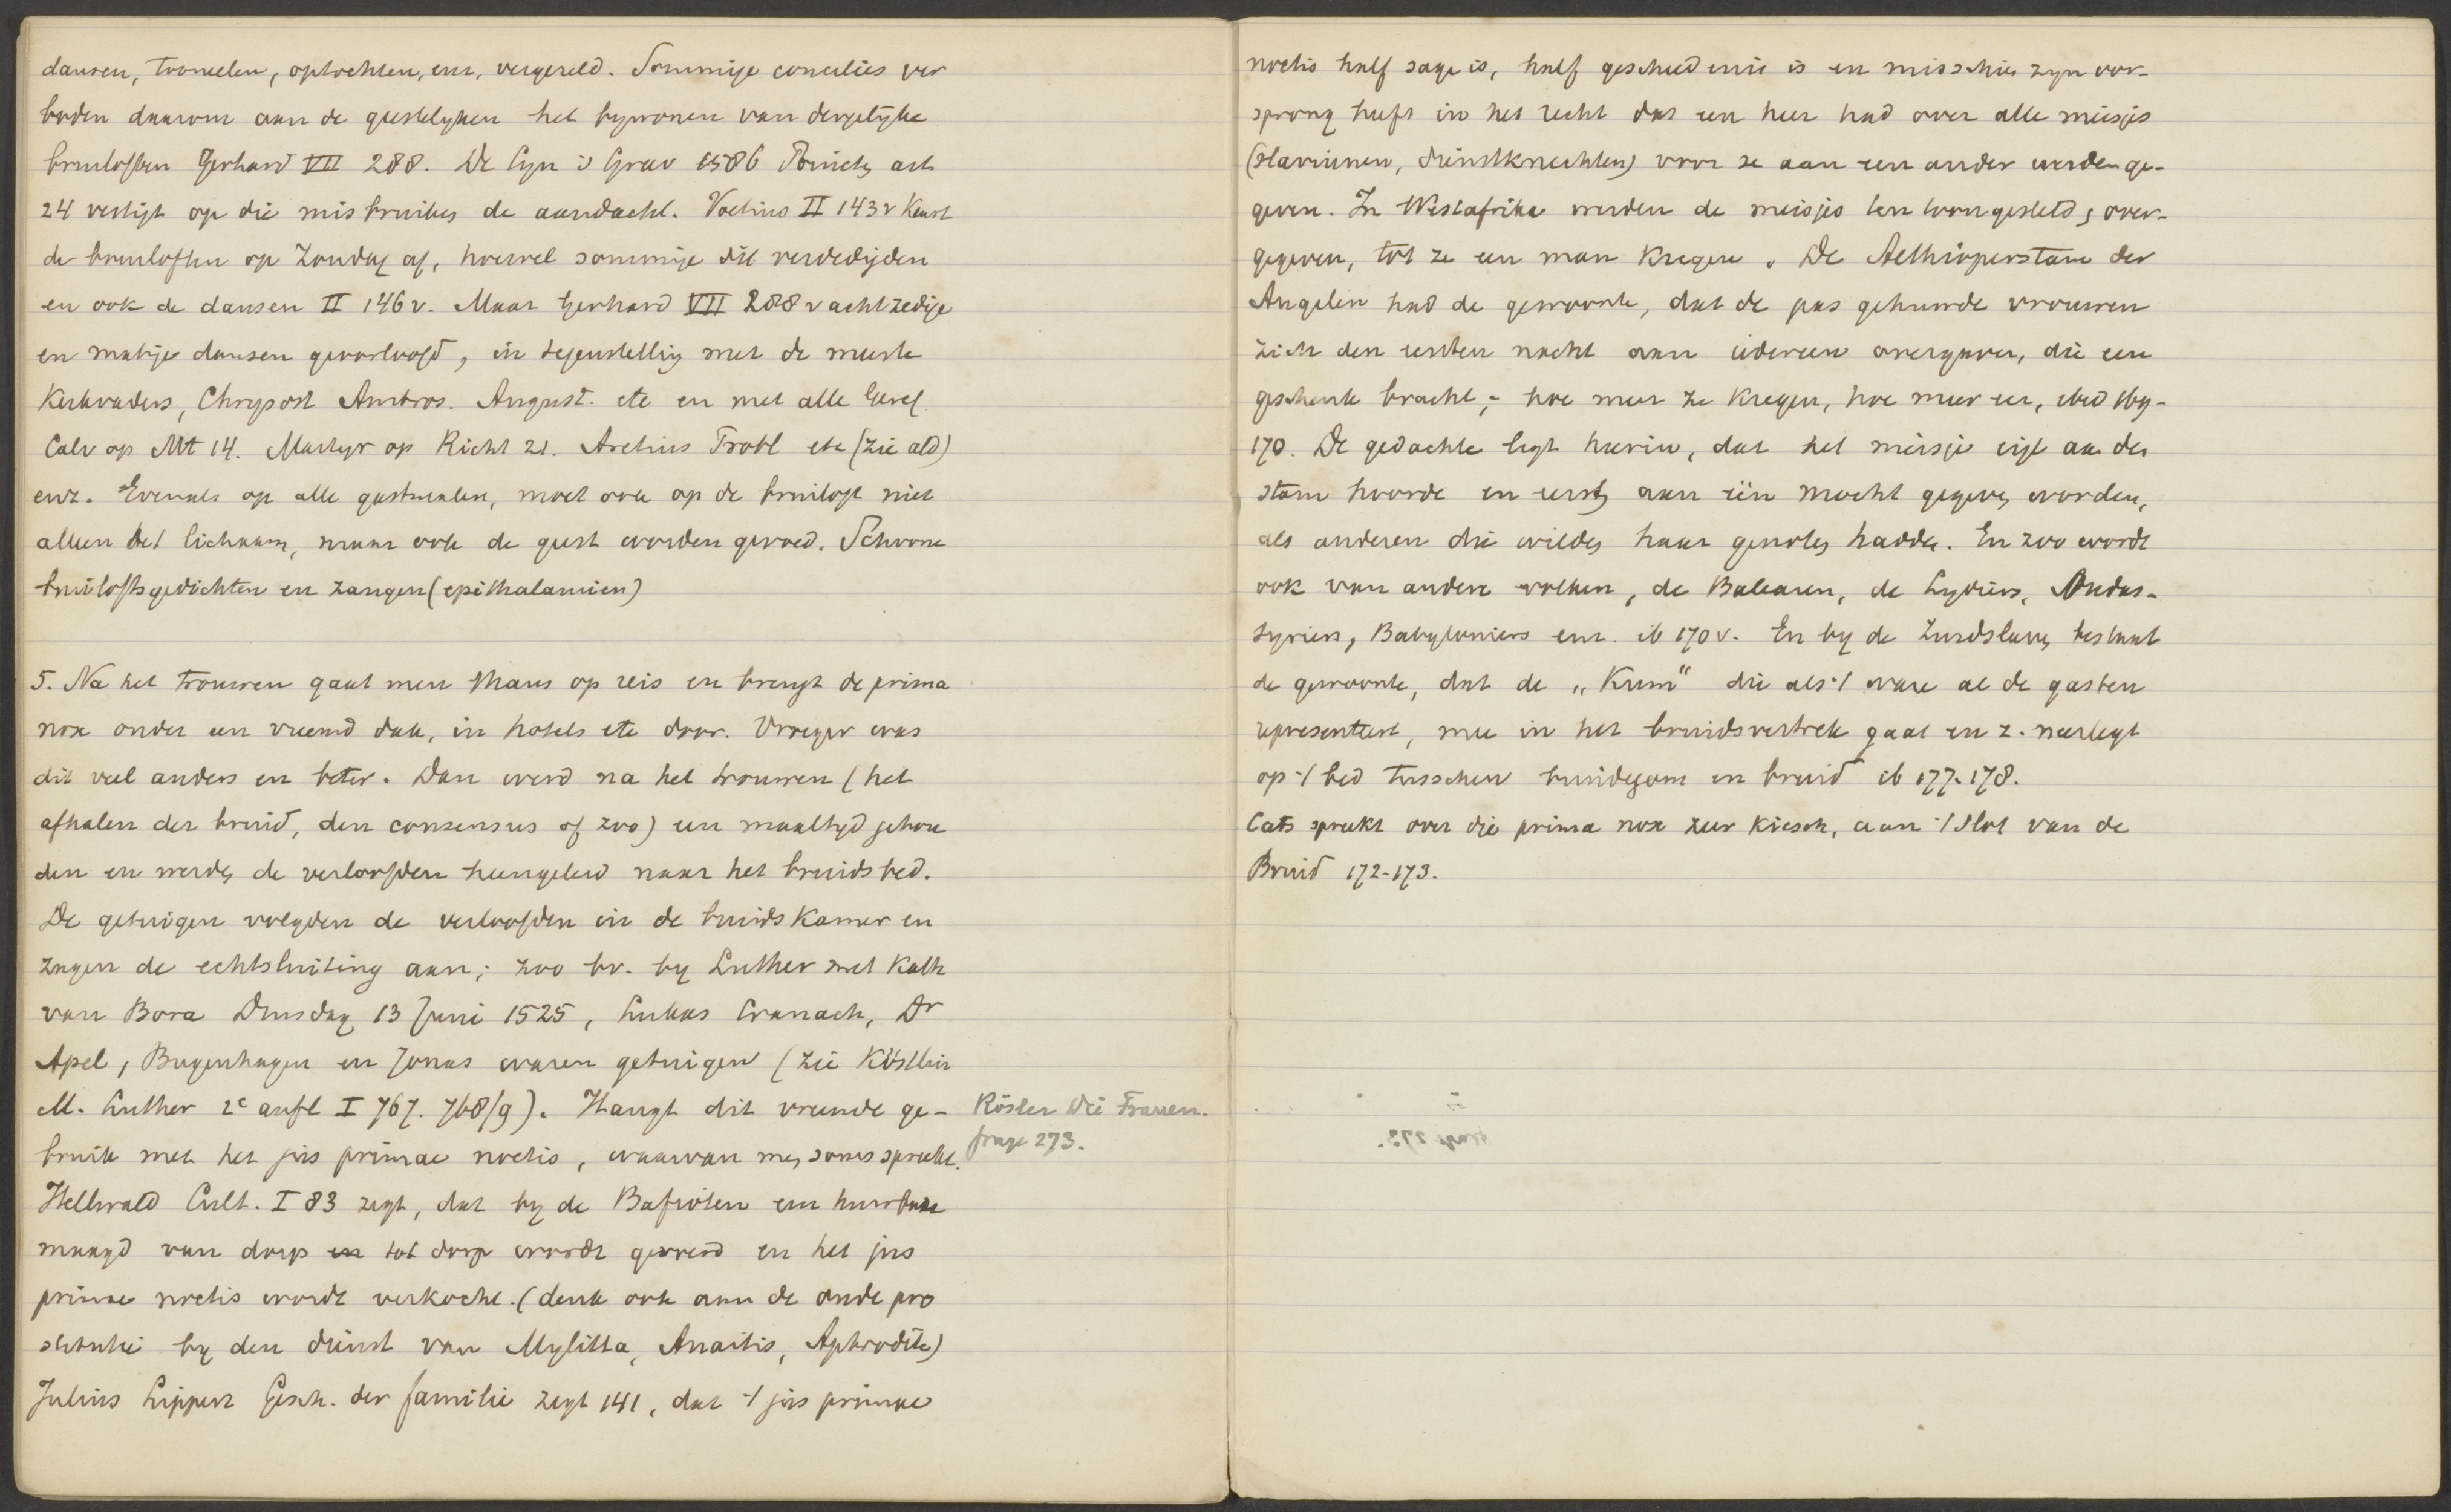 dansen, tooneelen, optochten, enz, vergezeld. Sommige concilies ver
boden daarom aan de geestelyken het bywonen van dergelyke
bruiloften Gerhard VII 288. De Syn 's Grav 1586 Partic art
24 vestigt op die misbruiken de aandacht. Voetius II 143v keurt
de bruiloften op Zondag af, hoewel sommige dit verdedigden
en ook de dansen II 146v. Maar Gerhard VII 288v acht zedige
en matige dansen geoorloofd, in tegenstelling met de meeste
Kerkvaders, Chrysost Ambros. August. etc en met alle Geref
Calv op Mt 14. Martyr op Richt 21. Aretius Probl etc (zie ald)
enz. Evenals op alle gastmalen, moet ook op de bruiloft niet
alleen het lichaam, maar ook de geest worden gevoed. Schoone
bruiloftsgedichten en zangen (epithalamien)
5. Na het trouwen gaat men thans op reis en brengt de prima
nox onder een vreemd dak, in hotels etc door. Vroeger was
dit veel anders en beter. Dan werd na het trouwen (het
afhalen der bruid, den consensus of zoo) een maaltyd gehou
den en werden de verloofden heengeleid naar het bruidsbed.
De getuigen volgden de verloofden in de bruidskamer en
zagen de echtsluiting aan; zoo bv. by Luther met Kath
van Bora Dinsdag 13 Juni 1525, Lukas Cranach, Dr
Apel, Bugenhagen en Jonas waren getuigen (zie Köstlin
M. Luther 2e aufl I 767. 768/9). Hangt dit vreemde ge-
bruik met het jus primae noctis, waarvan men soms spreekt.
Kösler Die Frauen.
frage 273.
Hellwald Cult. I 83 zegt, dat by de Bafioten een huwbare
maagd van dorp tot dorp wordt gevoerd en het jus
primae noctis wordt verkocht. (denk ook aan de oude pro
stitutie by den dienst van Mylitta, Anaitis, Aphrodite)
Julius Lippert Gesch. der familie zegt 141, dat 't jus primae
noctis half sage is, half geschiedenis is en misschien zyn oor-
sprong heeft in het recht dat een heer had over alle meisjes
(slavinnen, dienstknechten) voor ze aan een ander werden ge-
geven. In Westafrika werden de meisjes ten toon gesteld, over-
gegeven, tot ze een man kregen. De Aethioperstam der
Augelen had de gewoonte, dat de pas gehuwde vrouwen
zich den eersten nacht aan iedereen overgaven, die een
geschenk bracht; hoe meer ze kregen, hoe meer eer, ibid 169-
170. De gedachte ligt hierin, dat het meisje eigl aan den
stam hoorde en eerst aan één mocht gegeven worden,
als anderen die wilden haar genoten hadden. En zoo wordt
ook van andere volken, de Balearen, de Lydiers, Oudas-
syriers, Babyloniers enz. ib 170v. En by de Zuidslaven bestaat
de gewoonte, dat de „Kum" die als 't ware al de gasten
representeert, mee in het bruidsvertrek gaat en z. neerlegt
op 't bed tusschen bruidegom en bruid ib 177-178.
Cats spreekt over die prima nox zeer kiesch, aan 't slot van de
Bruid 172-173.